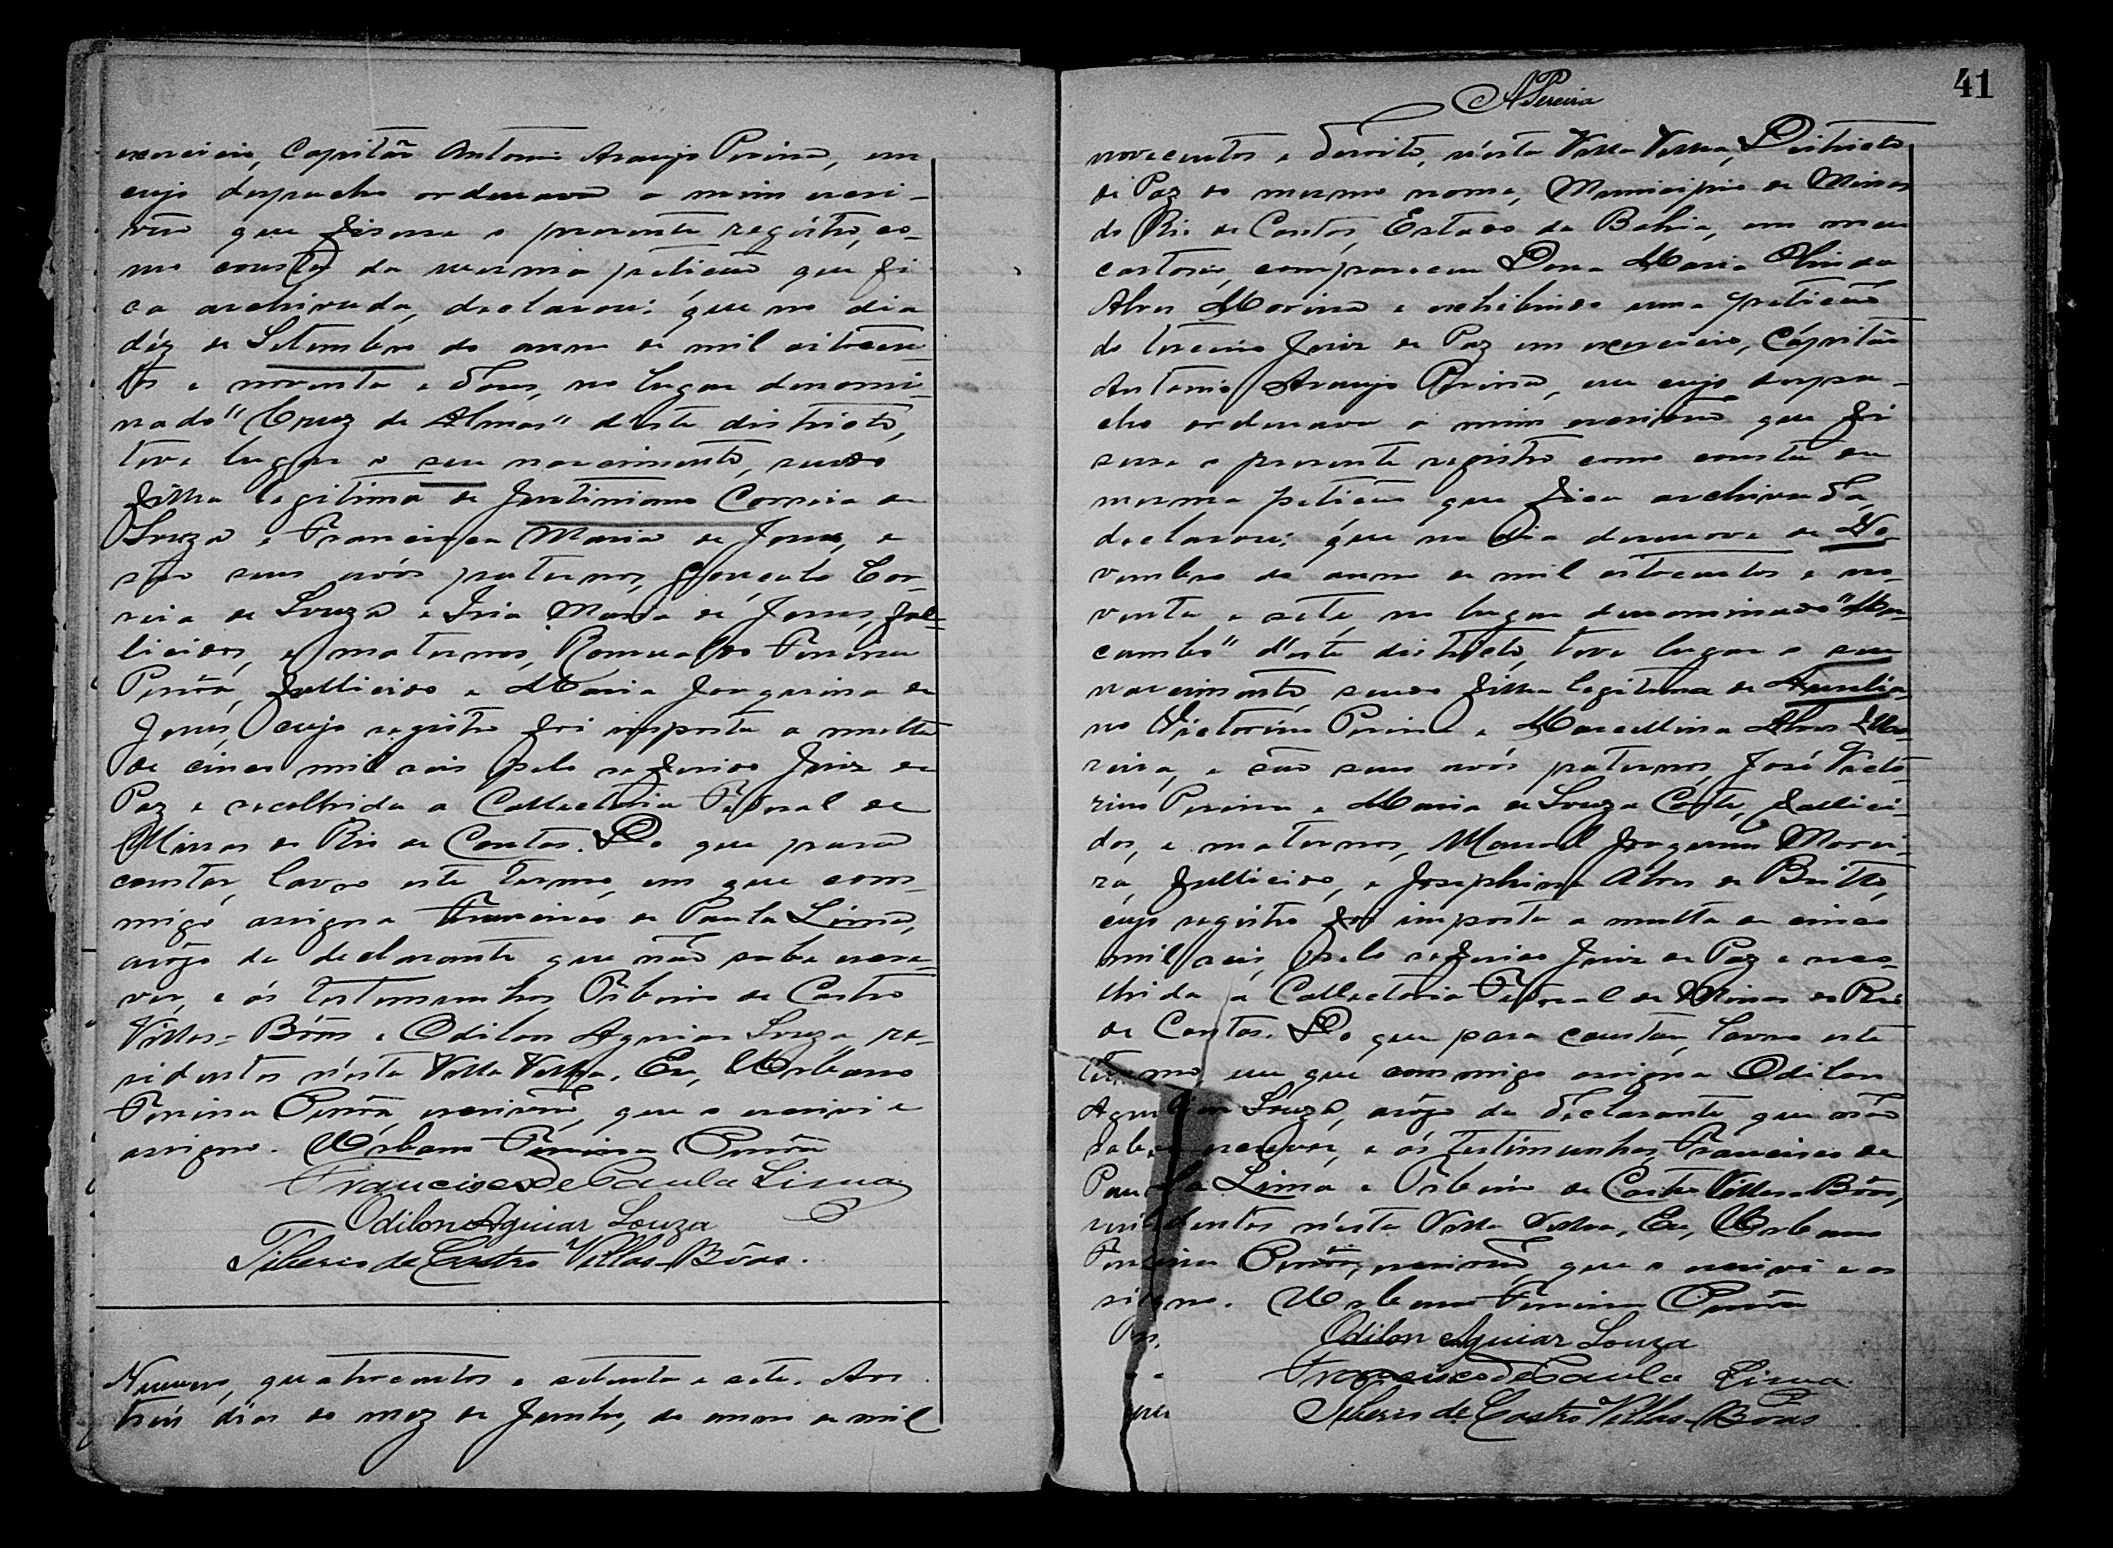 exercicio, Capitão Antonio Araujo Pereira, em
cujo despacho ordenava a mim escri-
vão que fizesse o presente registro, co-
mo consta da mesma petição que fi-
ca archivada, declarou: que no dia
déz de Setembro do anno de mil oitocen-
tos e noventa e dous, no lugar denomi-
nado "Cruz de Almas" d'este districto,
teve lugar o seu nascimento, sendo
filha legitima de Justiniano Correia de
Souza e Francisca Maria de Jesus, e
são seus avós paternos, Gonçalo Cor-
reia de Souza e Iria Maria de Jesus, fal-
licidos, e maternos, Romualdo Ferreira
fallicido e Maria Joaquina de
Jesus, cujo registro foi imposta a multa
de cinco mil reis pelo referido Juiz de
Paz e recolhida a Collectoria Federal de
Minas do Rio de Contas. Do que para
constar, lavro este termo, em que com-
migo assigna Francisco de Paula Lima,
arôgo da declarante que não sabe escre-
ver, e ás testemunhas, Tiberio de Castro
Villas-Bôas e Odilon Aguiar Souza re-
sidentes n'esta Villa Velha. Eu, Urbano
Ferreira escrivão, que o escrivi e
assigno. Urbano Ferreira
Francisco de Paula Lima
Odilon Aguiar Souza
Tiberio de Castro Villas-Bôas.
Numero, quatrocentos e setenta e sete. Aos
treis dias do mez de Junho, do anno de mil
APereira
41
novecentos e desoito, n'esta Villa Velha, Districto
de Paz do mesmo nome, Municipio de Minas
do Rio de Contas, Estado da Bahia, em meu
cartorio, compareceu Dona Maria Olinda
Alves Moreira e exhibindo uma petição
do terceiro Juiz de Paz em exercicio, Cápitão
Antonio Araujo Pereira, em cujo despa-
cho ordenava a mim escrivão que fi-
sesse o presente registro como consta da
mesma petição que fica archivada,
declarou: que no dia desenove de No-
vembro do anno de mil oitocentos e no-
venta e sete, no lugar denominado "Mo-
cambo" d'este districto, teve lugar o seu
nascimento, sendo filha legitima de Aurelia-
no Victorino Pereira e Marcellina Alves Mo-
reira, e são seus avós paternos, José Victo-
rino Pereira e Maria de Souza Costa, fallici-
dos, e maternos, Manoel Joaquim Morei-
ra, fallicido, e Josephina Alves de Britto,
cujo registro foi imposta a multa de cinco
mil reis, pelo referido Juiz de Paz e reco-
lhida a Collectoria Federal de Minas do Rio
de Contas. Do que para constar, lavro este
termo em que commigo assigna Odilon
Aguiar Souza, arôgo da declarante que não
sabe escrever, e ás testimunhas, Francisco de
Paula Lima e Tiberio de Castro Villas-Bôas,
residentes n'esta Villa Velha, Eu, Urbano
Ferreira escrivão, que o escrivi e as-
signo. Urbano Ferreira
Odilon Aguiar Souza
Francisco de Paula Lima
Tiberio de Castro Villas-Bôas